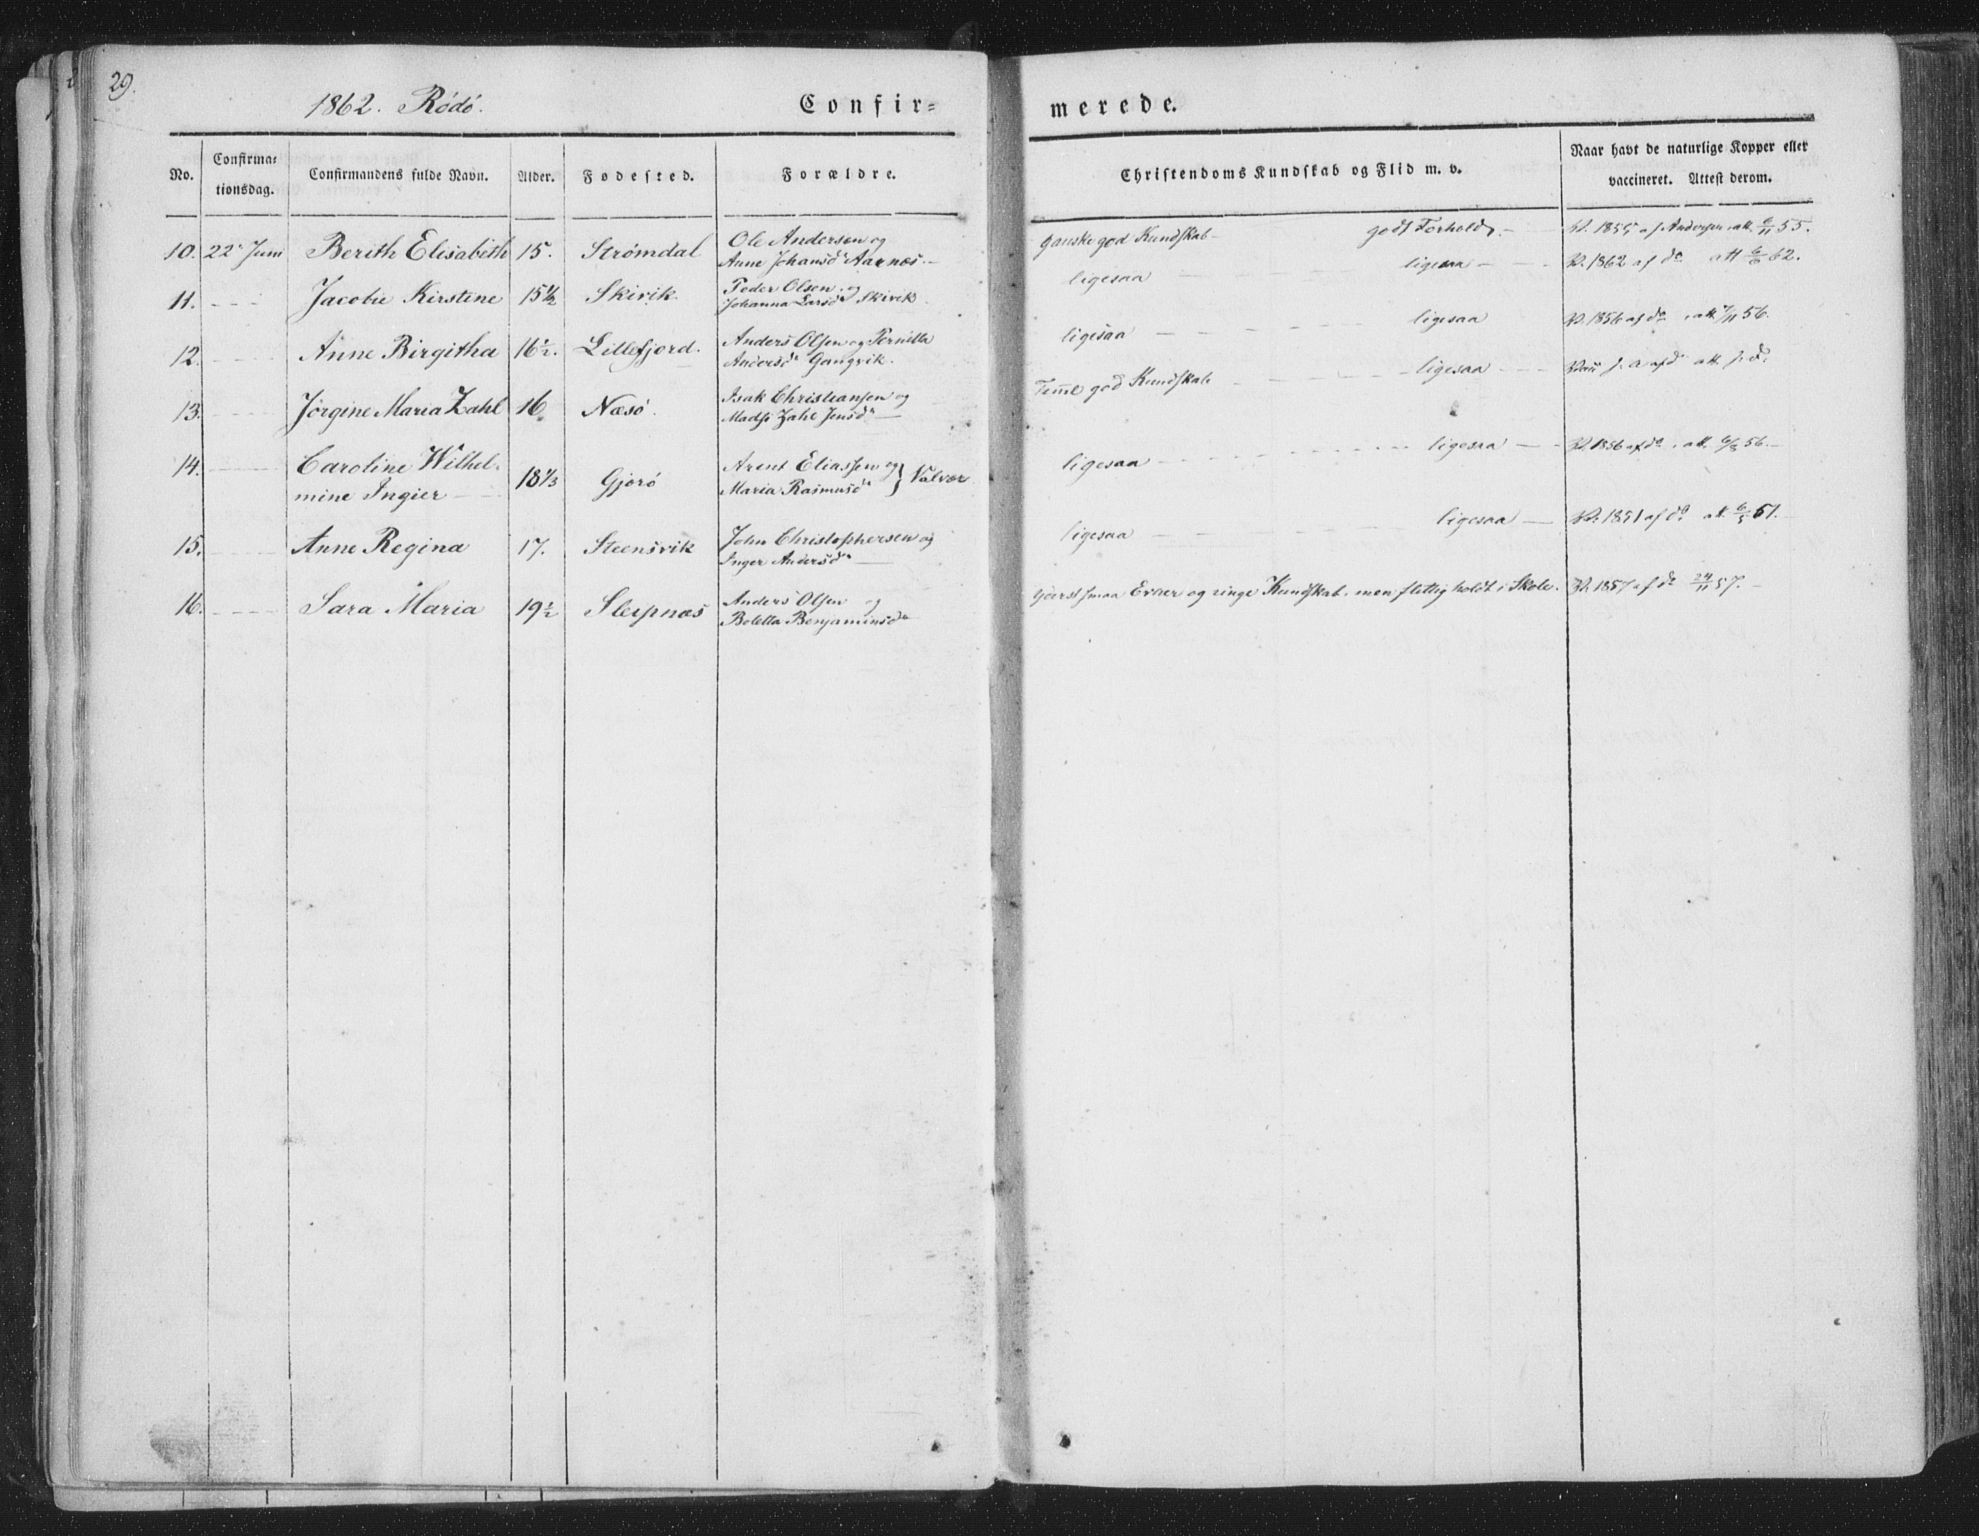 29.
1862. Rödö.
Confir=
merede.
No.
Confirma=
tionsdag.
Confirmandens fulde Navn.
Alder.
Fødested.
Forældre.
Christendoms Kundskab og Flid m. v.
Naar havt de naturlige Kopper eller
vaccineret. Attest derom.
10. 22 Juni Berith Elisabeth 15. Strömdal Ole Andersen og
Anne Johansdr Aarnæs
Ganske god Kundskab godt Forhold V. 1855 af Andersen att. 6/11 55.
11. Jacobie Kirstine 15½ Skivik. Peder Olsen og
Johanna Larsdr Skivik.
ligesaa ligesaa V. 1862 af do att 6/6 62.
12. Anne Birgitha 16½. Lillefjord. Anders Olsen og Pernilla
Andersdr Gangvik.
ligesaa ligesaa V. 1856 af do att. 7/11 56.
13. Jörgine Maria Zahl 16 Næsö. Isak Christiansen og
Zahl Jensdr
god Kundskab ligesaa
14. Caroline Wilhel-
mine Ingier 18⅓ Gjerö Arent Eliassen og
Maria Rasmusdr } Valvær
ligesaa ligesaa V. 1856 af do att. 56.
15. Anne Regina 17. Steensvik John Christophersen og
Inger Andersdr
ligesaa ligesaa V. 1851 af do att. 6/5 51.
16. Sara Maria 19½ Sleipnæs Anders Olsen og
Boletta Benjaminsdr
smaa Evner og ringe Kundskab. men flittig holdt i Skole. V. 1857 af do 24/11 57.